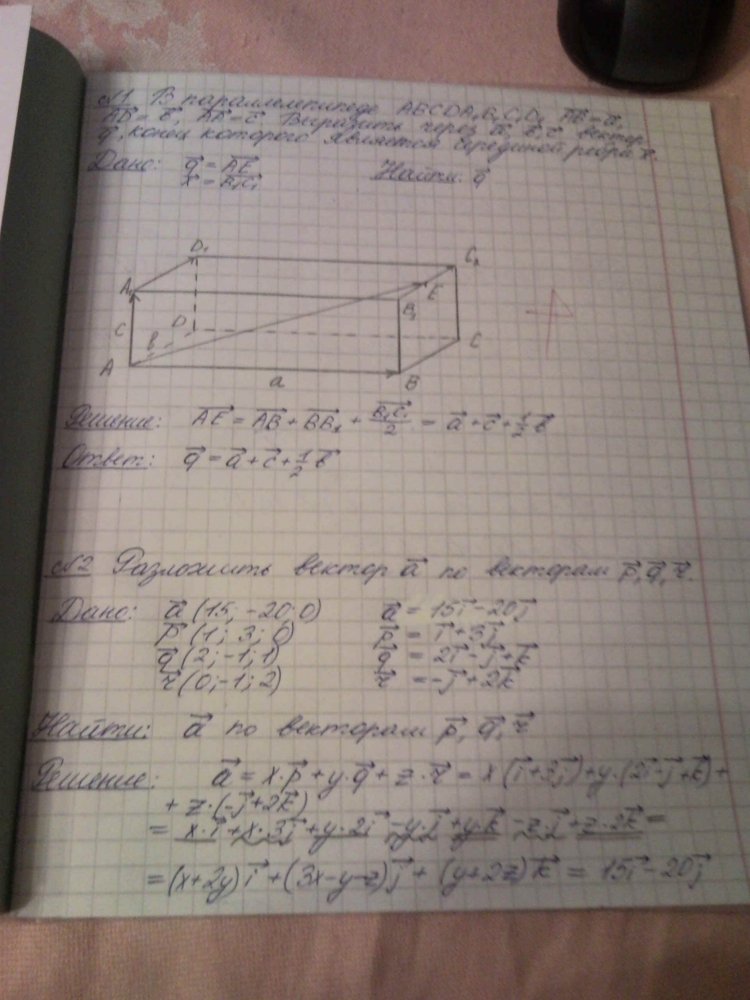 №1 В параллелепипеде ABCDA₁B₁C₁D₁ AB = a,
AD = в, AA₁ = c Выразить через a, в, c вектор
q, конец которого является серединой ребра x.
Дано: q = AE Найти: q
x = B₁C₁
D₁ C₁
A₁ E
B₁
C D C
в
A a B
Решение: AE = AB + BB₁ + B₁C₁/2 = a + c + 1/2 в
Ответ: q = a + c + 1/2 в
№2 Разложить вектор a по векторам p, q, r.
Дано: a (15; -20; 0) a = 15i - 20j
p (1; 3; 0) p = i + 3j
q (2; -1; 1) q = 2i - j + k
r (0; -1; 2) r = -j + 2k
Найти: a по векторам p, q, r
Решение: a = x·p + y·q + z·r = x(i + 3j) + y·(2i - j + k) +
+ z·(-j + 2k)
= x·i + x·3j + y·2i - y·j + y·k - z·j + z·2k =
= (x+2y)i + (3x-y-z)j + (y+2z)k = 15i - 20j